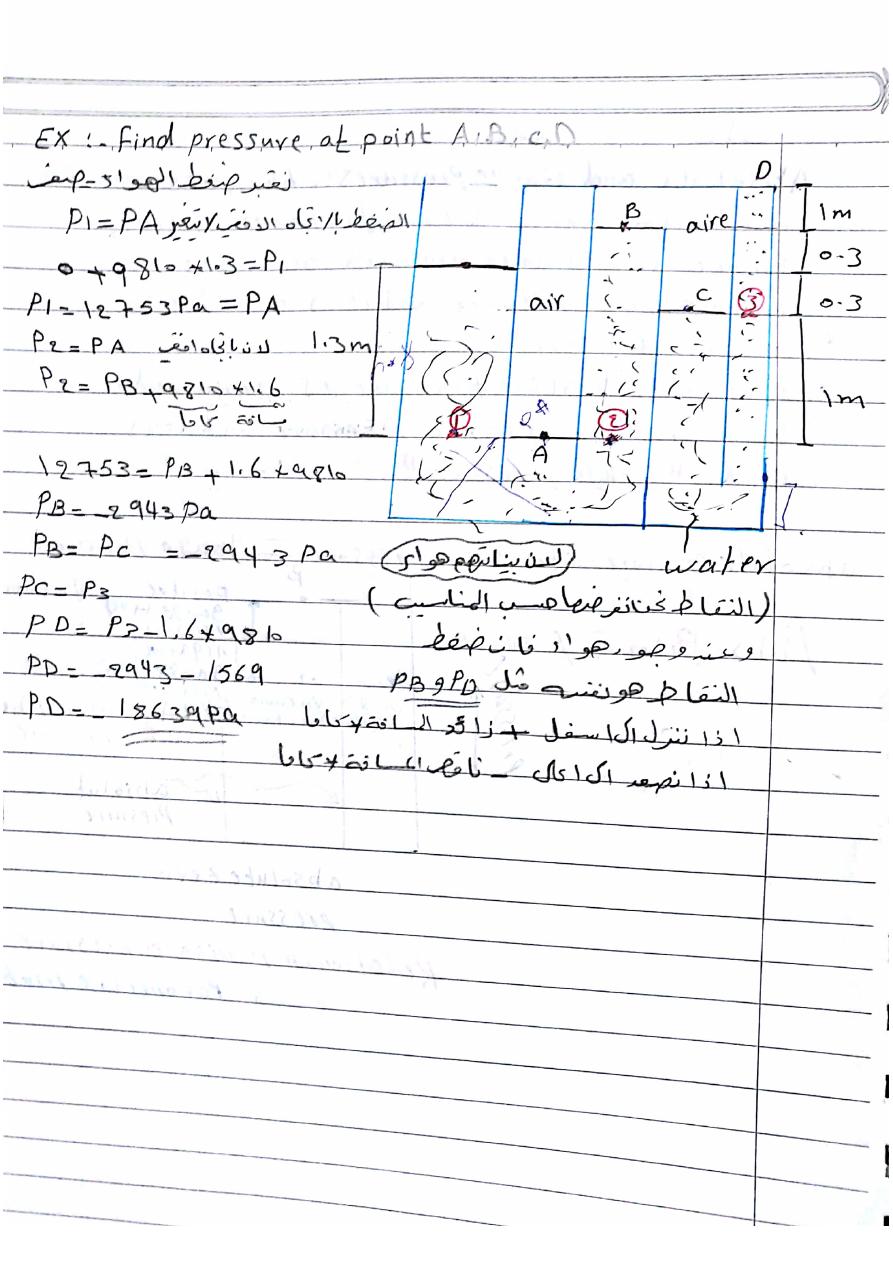 EX :- Find pressure at point A,B,C,D
نعتبر ضغط الهواء = صفر
P1 = PA الضغط بالاتجاه الافقي لا يتغير
0 + 9810 * 1.3 = P1
P1 = 12753 Pa = PA
P2 = PA لان باتجاه افقي
P2 = PB + 9810 * 1.6
كاما مسافة
12753 = PB + 1.6 * 9810
PB = -2943 Pa
PB = PC = -2943 Pa
لان بيناتهم هواء
PC = P3
PD = P3 - 1.6 * 9810
PD = -2943 - 1569
PD = -18639 Pa
(النقاط نحن نفرضها حسب المناسيب)
وعند وجود هواء فان ضغط
النقاط هو نفسه مثل PB و PD
اذا ننزل الى اسفل + زائد المسافة * كاما
اذا نصعد الى اعلى - ناقص المسافة * كاما
D
B
aire
1m
0.3
C
3
0.3
air
1.3m
1m
1
2
A
water